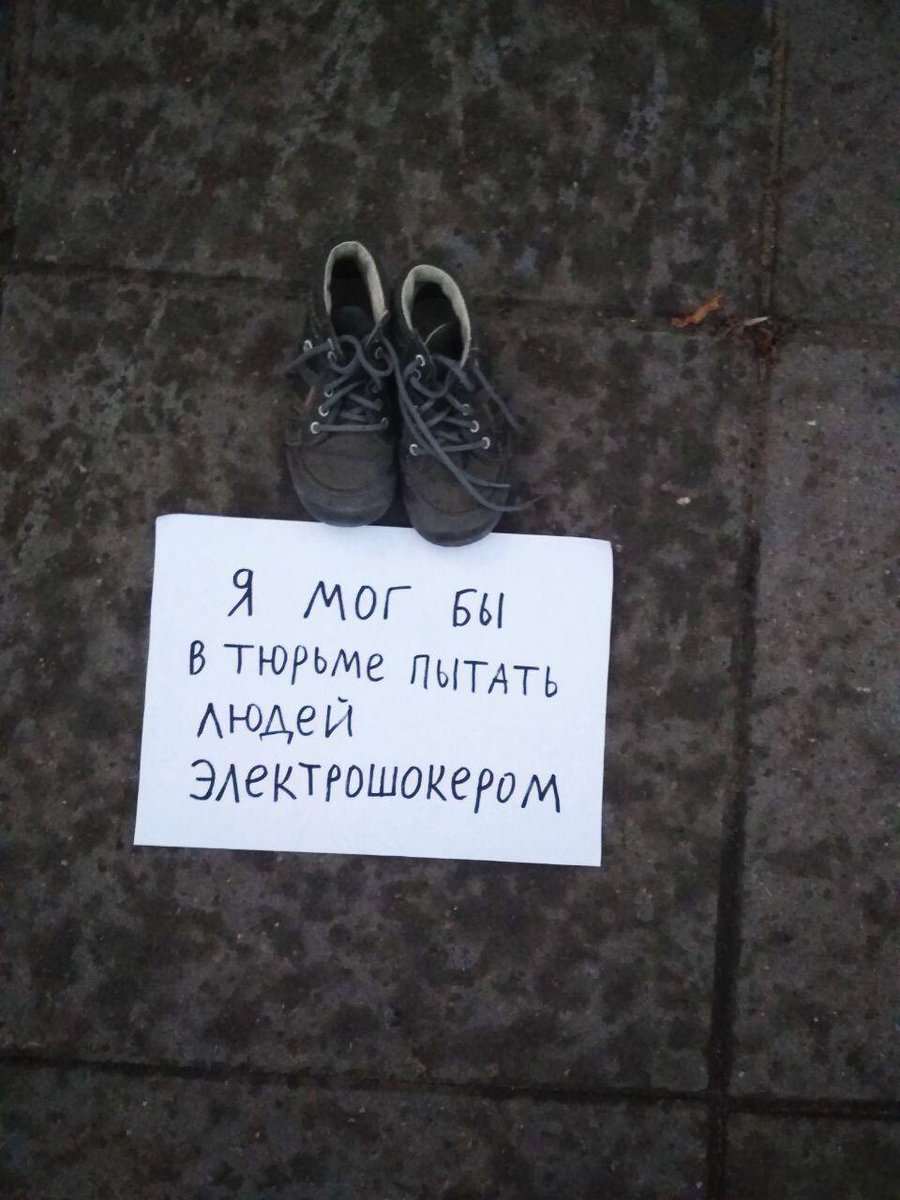 Я МОГ БЫ
В ТЮРЬМЕ ПЫТАТЬ
ЛЮДЕЙ
ЭЛЕКТРОШОКЕРОМ